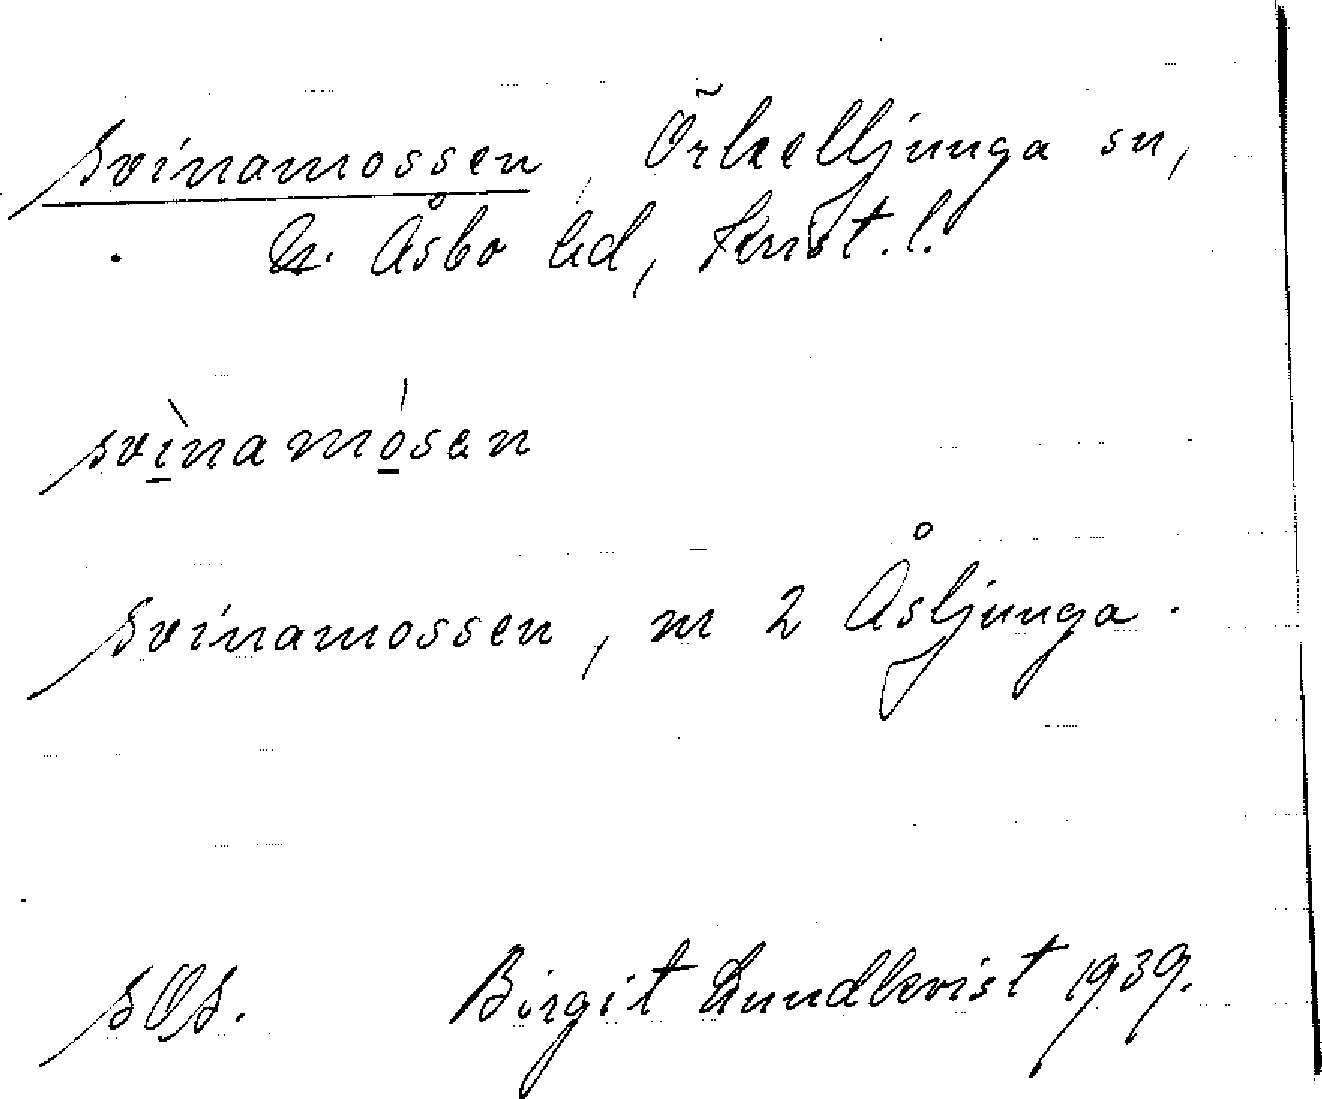 Svinamossen, Örkelljunga sn,
N. Åsbo hd, Krist. l.
svìnamósen
Svinamossen, m 2 Åsljunga.
Birgit Lundkvist 1939.